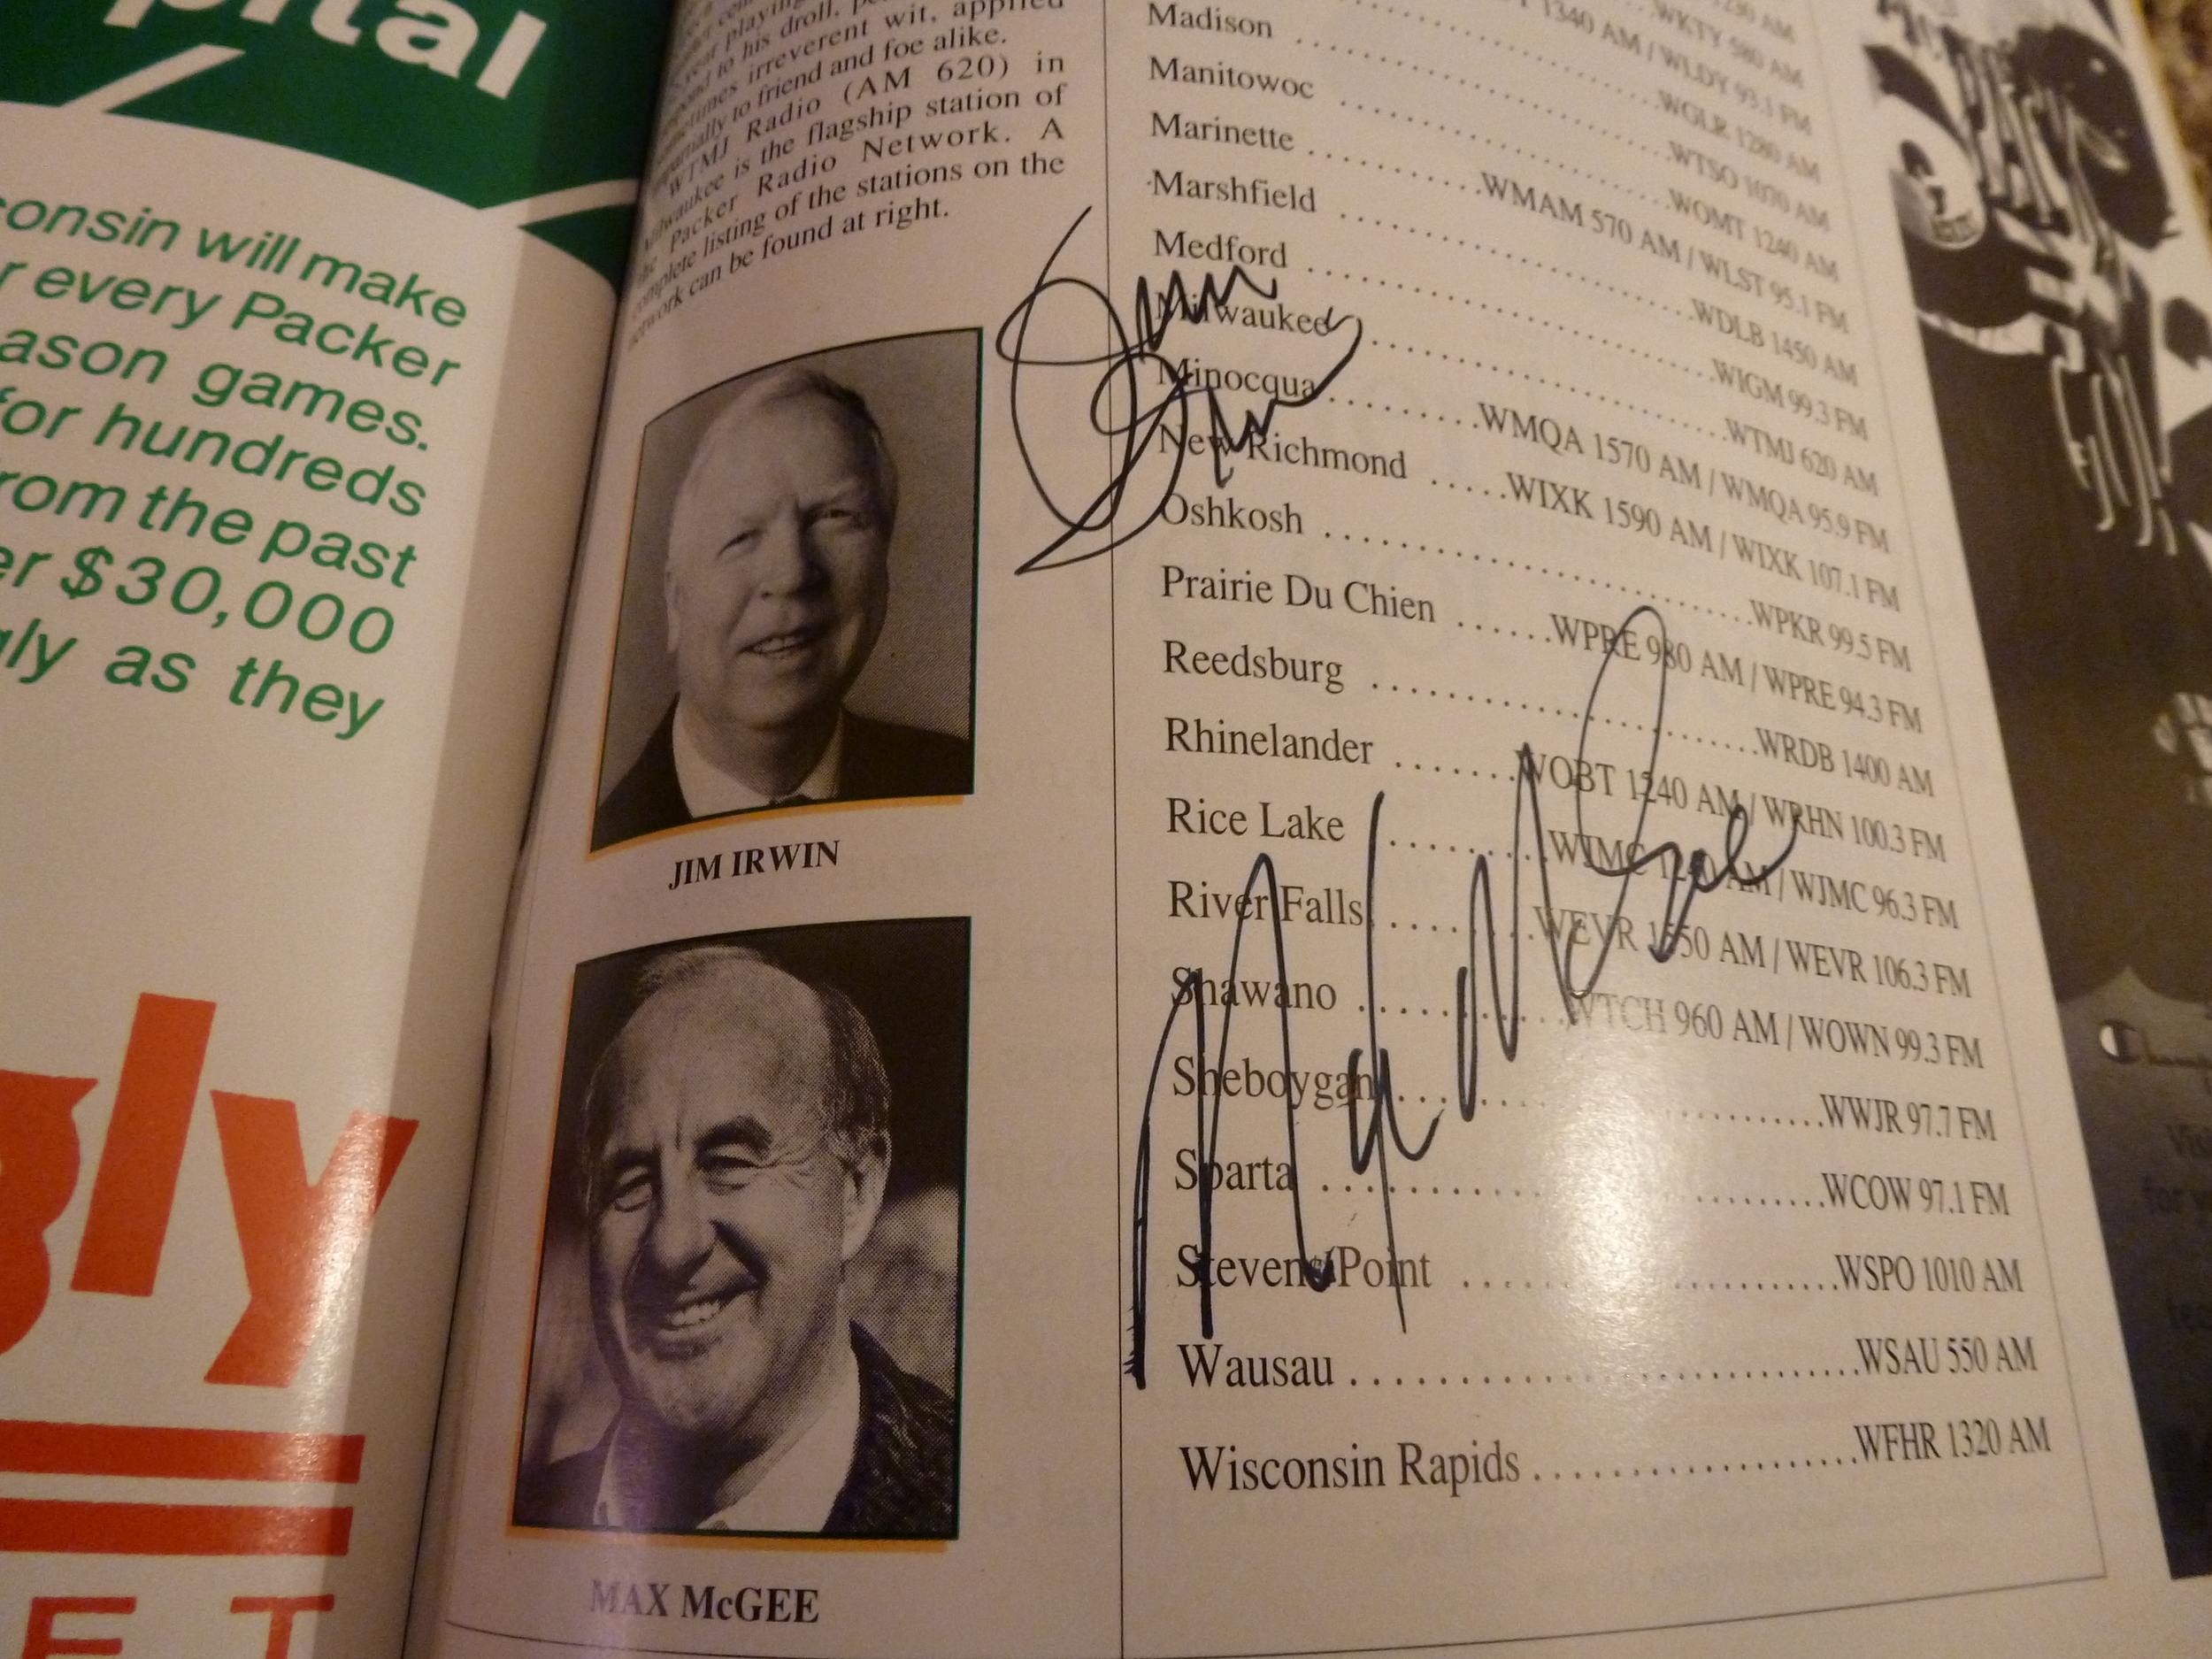 pital
consin will make
every Packer
ason games.
for hundreds
rom the past
er $30,000
gly as they
gly
ET
year playing
to his droll,
sometimes irreverent wit, applied
to friend and foe alike.
WTMJ Radio (AM 620) in
Milwaukee is the flagship station of
the Packer Radio Network. A
complete listing of the stations on the
network can be found at right.
JIM IRWIN
MAX McGEE
1230 AM
WKTY 580 AM
1340 AM / WLDY 93.1 FM
WGLR 1280 AM
Madison ..... WTSO 1070 AM
Manitowoc ..... WOMT 1240 AM
Marinette ..... WMAM 570 AM / WLST 95.1 FM
Marshfield ..... WDLB 1450 AM
Medford ..... WIGM 99.3 FM
Milwaukee ..... WTMJ 620 AM
Minocqua ..... WMQA 1570 AM / WMQA 95.9 FM
New Richmond ..... WIXK 1590 AM / WIXK 107.1 FM
Oshkosh ..... WPKR 99.5 FM
Prairie Du Chien ..... WPRE 980 AM / WPRE 94.3 FM
Reedsburg ..... WRDB 1400 AM
Rhinelander ..... WOBT 1240 AM / WRHN 100.3 FM
Rice Lake ..... WJMC 1240 AM / WJMC 96.3 FM
River Falls ..... WEVR 1550 AM / WEVR 106.3 FM
Shawano ..... WTCH 960 AM / WOWN 99.3 FM
Sheboygan ..... WWJR 97.7 FM
Sparta ..... WCOW 97.1 FM
Stevens Point ..... WSPO 1010 AM
Wausau ..... WSAU 550 AM
Wisconsin Rapids ..... WFHR 1320 AM
Jim Irwin
Max McGee
Champion